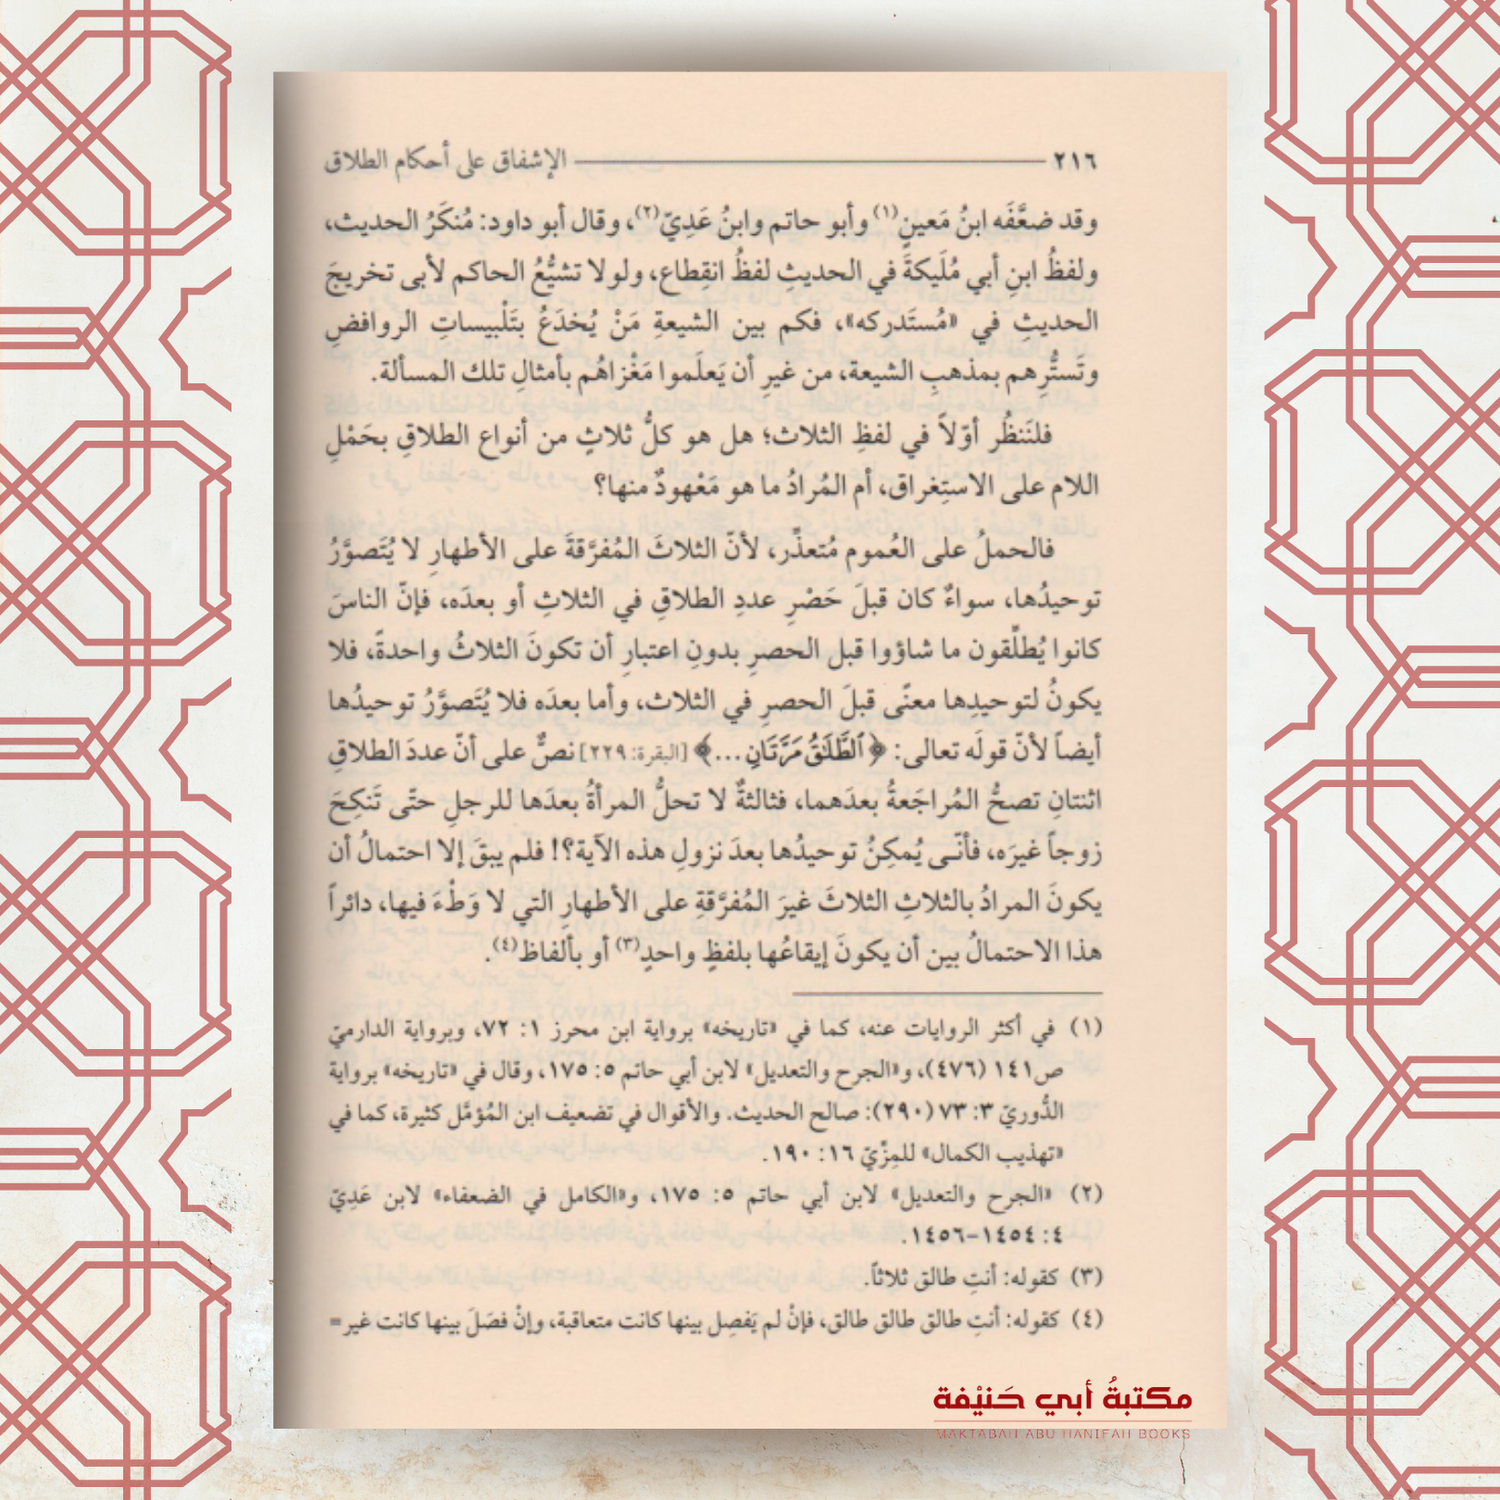 ٢١٦ الإشفاق على أحكام الطلاق
وقد ضعَّفَه ابنُ مَعينٍ(١) وأبو حاتم وابنُ عَدِيّ(٢)، وقال أبو داود: مُنكَرُ الحديث،
ولفظُ ابنِ أبي مُلَيكةَ في الحديثِ لفظُ انقِطاع، ولولا تشيُّعُ الحاكم لأبى تخريجَ
الحديثِ في «مُستَدركه»، فكم بين الشيعةِ مَنْ يُخدَعُ بتَلْبيساتِ الروافضِ
وتَستُّرِهم بمذهبِ الشيعة، من غيرِ أن يَعلَموا مَغْزاهُم بأمثالِ تلك المسألة.
فلنَنظُر أوّلاً في لفظِ الثلاث؛ هل هو كلُّ ثلاثٍ من أنواع الطلاقِ بحَمْلِ
اللام على الاستِغراق، أم المُرادُ ما هو مَعْهودٌ منها؟
فالحملُ على العُموم مُتعذِّر، لأنّ الثلاثَ المُفرَّقةَ على الأطهارِ لا يُتَصوَّرُ
توحيدُها، سواءٌ كان قبلَ حَصْرِ عددِ الطلاقِ في الثلاثِ أو بعدَه، فإنّ الناسَ
كانوا يُطلِّقون ما شاؤوا قبل الحصرِ بدونِ اعتبارِ أن تكونَ الثلاثُ واحدةً، فلا
يكونُ لتوحيدِها معنًى قبلَ الحصرِ في الثلاث، وأما بعدَه فلا يُتَصوَّرُ توحيدُها
أيضاً لأنّ قولَه تعالى: ﴿ٱلطَّلَٰقُ مَرَّتَانِ...﴾ [البقرة: ٢٢٩] نصٌّ على أنّ عددَ الطلاقِ
اثنتانِ تصحُّ المُراجَعةُ بعدَهما، فثالثةٌ لا تحلُّ المرأةُ بعدَها للرجلِ حتّى تَنكِحَ
زوجاً غيرَه، فأنّى يُمكِنُ توحيدُها بعدَ نزولِ هذه الآية؟! فلم يبقَ إلا احتمالُ أن
يكونَ المرادُ بالثلاثِ الثلاثَ غيرَ المُفرَّقةِ على الأطهارِ التي لا وَطْءَ فيها، دائراً
هذا الاحتمالُ بين أن يكونَ إيقاعُها بلفظٍ واحدٍ(٣) أو بألفاظ(٤).
(١) في أكثر الروايات عنه، كما في «تاريخه» برواية ابن محرز ١: ٧٢، وبرواية الدارميّ
ص١٤١ (٤٧٦)، و«الجرح والتعديل» لابن أبي حاتم ٥: ١٧٥، وقال في «تاريخه» برواية
الدُّوريّ ٣: ٧٣ (٢٩٠): صالح الحديث. والأقوال في تضعيف ابن المُؤمَّل كثيرة، كما في
«تهذيب الكمال» للمِزّيّ ١٦: ١٩٠.
(٢) «الجرح والتعديل» لابن أبي حاتم ٥: ١٧٥، و«الكامل في الضعفاء» لابن عَدِيّ
٤: ١٤٥٤-١٤٥٦.
(٣) كقوله: أنتِ طالق ثلاثاً.
(٤) كقوله: أنتِ طالق طالق طالق، فإنْ لم يَفصِل بينها كانت متعاقبة، وإنْ فصَلَ بينها كانت غير=
مكتبةُ أبي حَنيْفة
MAKTABAH ABU HANIFAH BOOKS